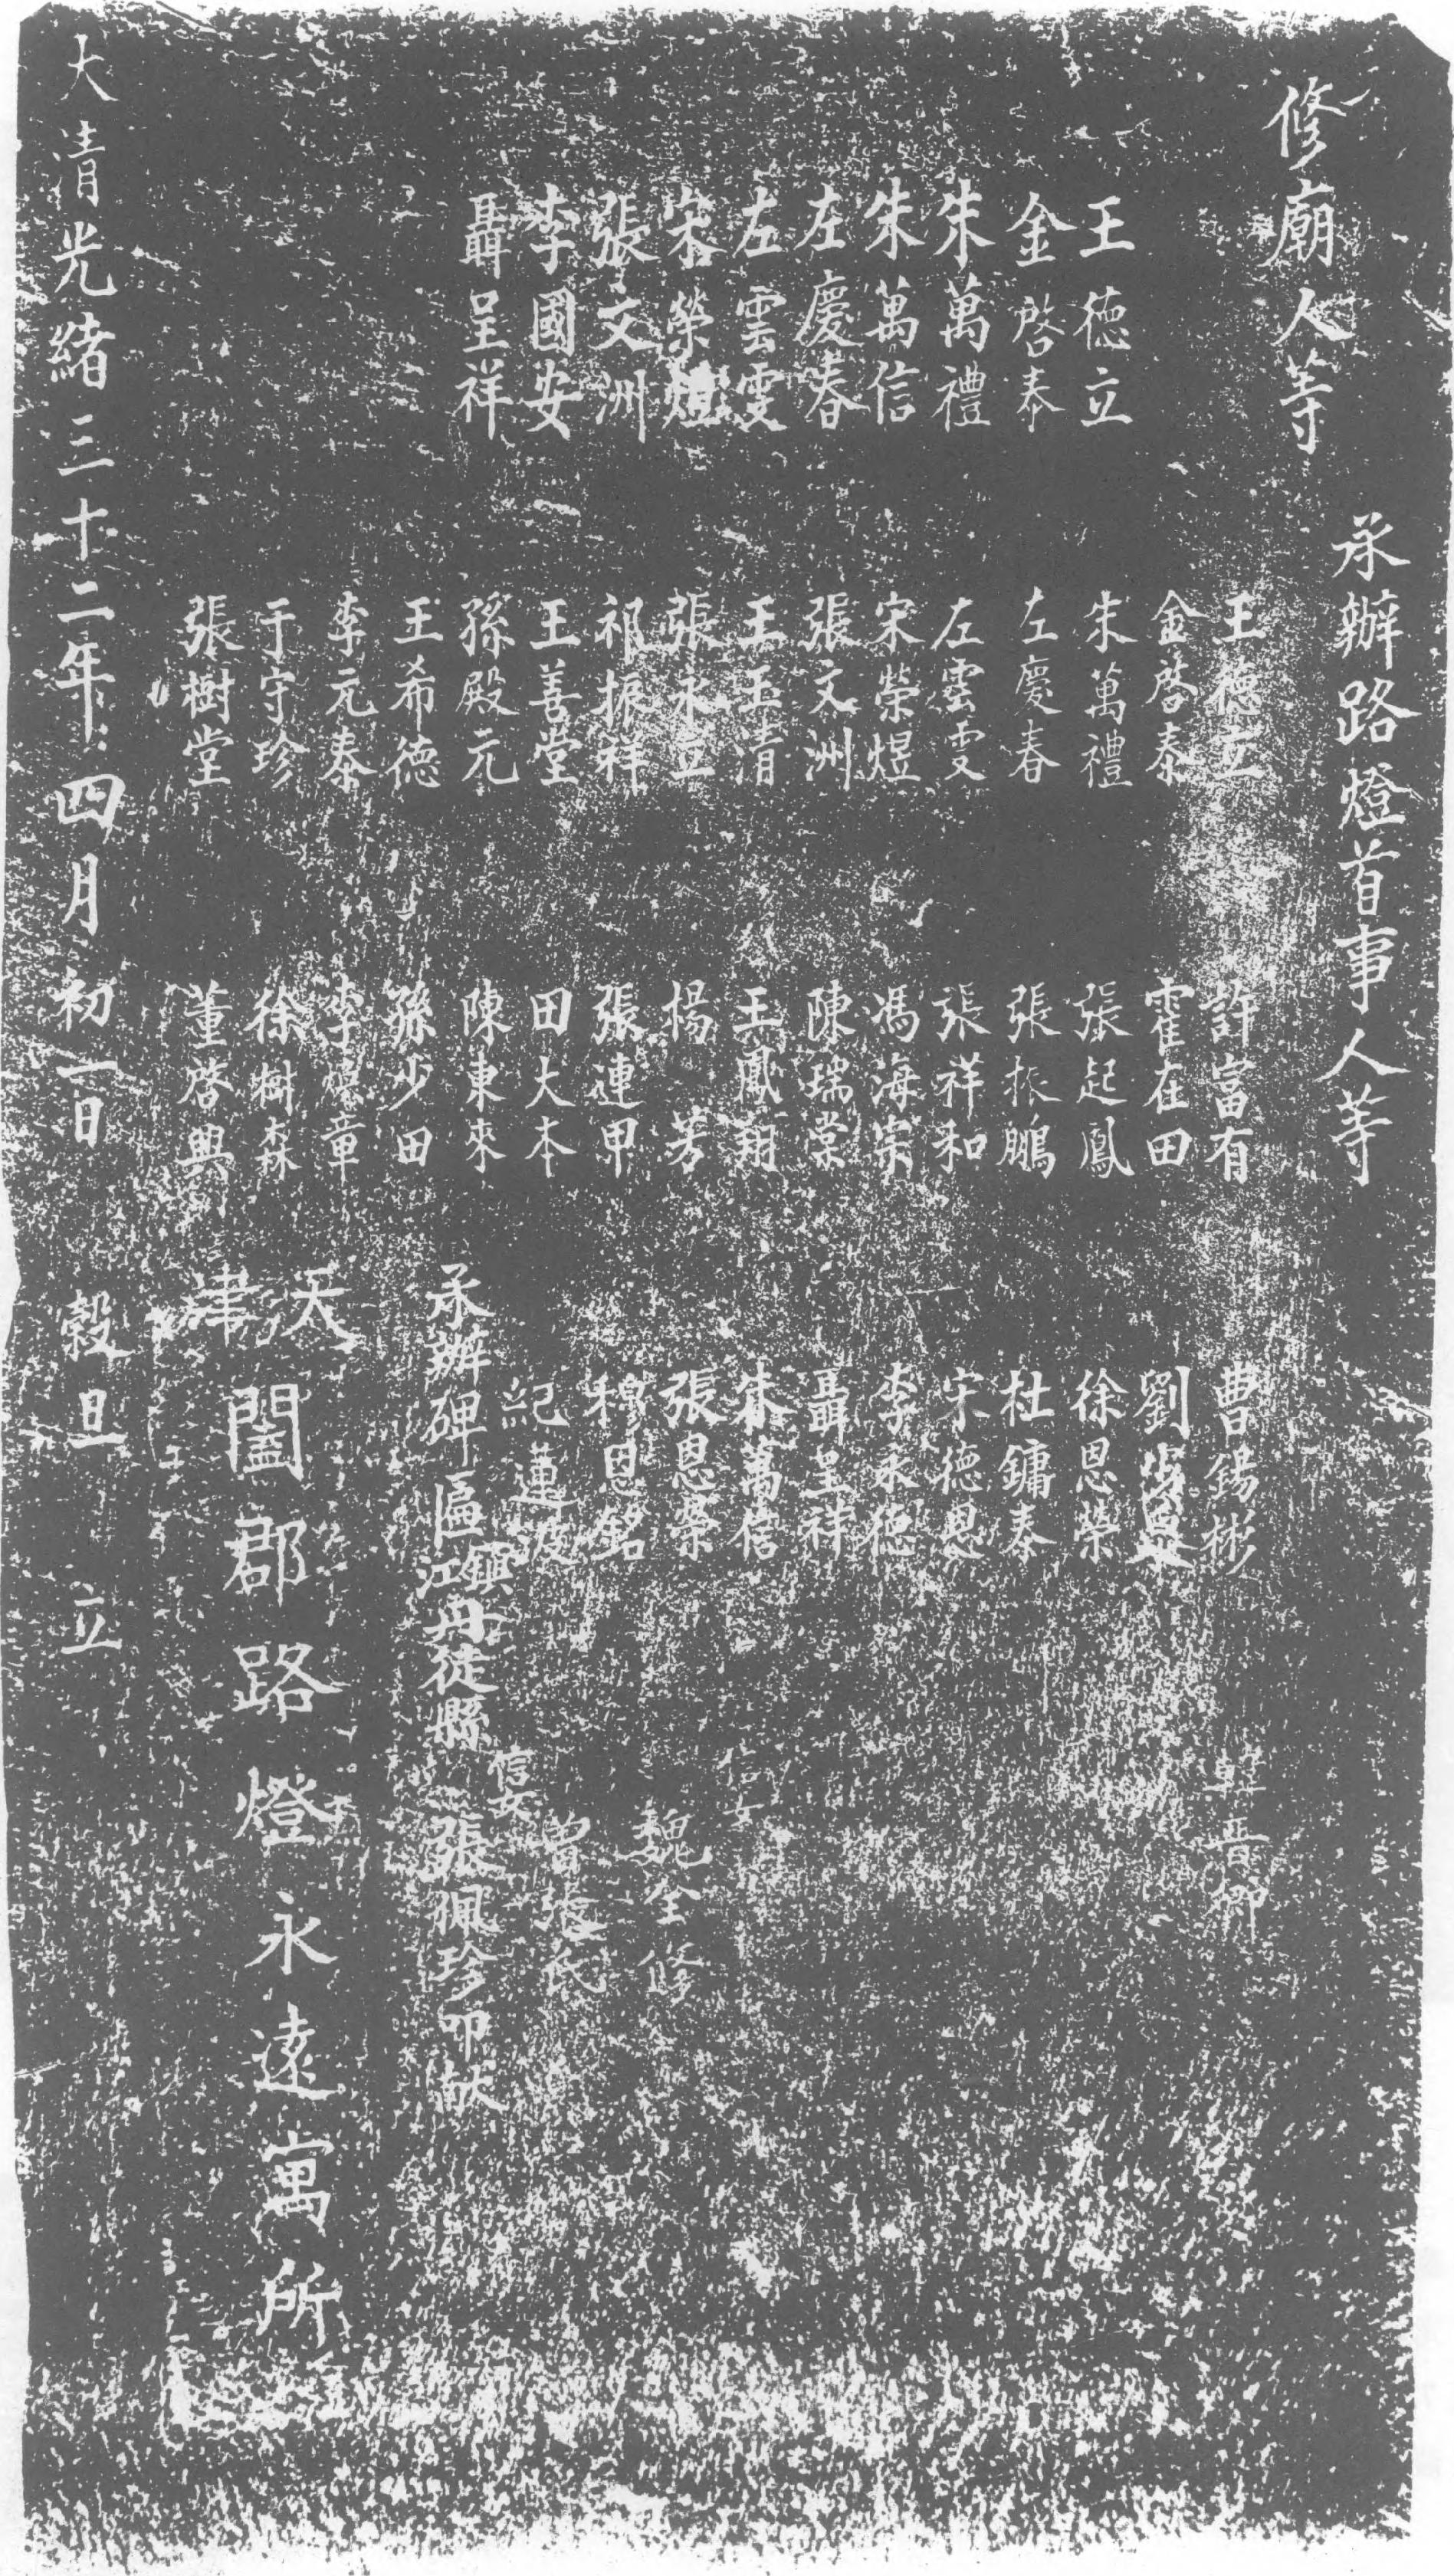 修廟人等
王德立
金啓泰
朱萬禮
朱萬信
左慶春
左雲雯
宋榮煜
張文洲
李國安
聶呈祥
承辦路燈首事人等
王德立
金啓泰
朱萬禮
左慶春
左雲雯
宋榮煜
張文洲
王玉清
張永立
祁振祥
王善堂
孫殿元
王希德
李元泰
于守珍
張樹堂
許富有
霍在田
張起鳳
張振鵬
張祥和
馮海宗
陳瑞棠
王鳳翔
楊 芳
張連甲
田大本
陳東來
孫少田
李煥章
徐樹森
董啓興
曹錫彬
劉泉
徐恩榮
杜鏞泰
宋德恩
李永德
聶呈祥
朱萬信
張恩榮
穆恩銘
紀蓮波
韓晋卿
信女
魏全修
信女 曾張氏
承辦碑區鎮江丹徒縣 張佩珍叩獻
天津闔郡路燈永遠寓所
大清光緒三十二年四月初一日 穀旦 立